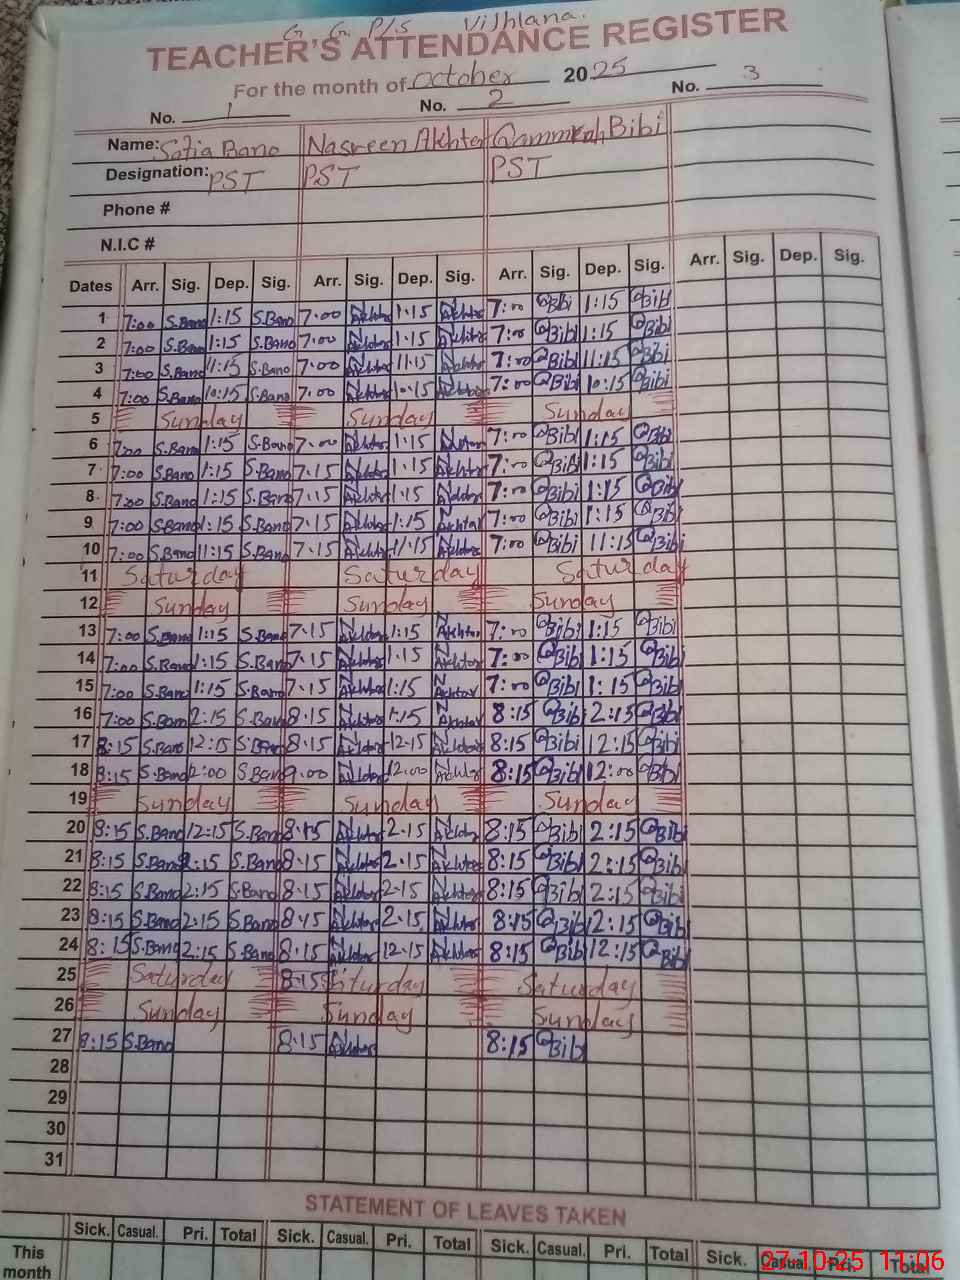 G. G. P/S Vishlana.
TEACHER'S ATTENDANCE REGISTER
For the month of October 2025
No. 1 No. 2 No. 3
Name: Safia Bano Nasreen Akhter Qammrah Bibi
Designation: PST PST PST
Phone #
N.I.C #
Dates Arr. Sig. Dep. Sig. Arr. Sig. Dep. Sig. Arr. Sig. Dep. Sig. Arr. Sig. Dep. Sig.
1 7:00 S.Bano 1:15 S.Bano 7.00 N Akhter 1.15 N Akhter 7:00 QBibi 1:15 QBibi
2 7:00 S.Bano 1:15 S.Bano 7.00 N Akhter 1.15 N Akhter 7:00 QBibi 1:15 QBibi
3 7:00 S.Bano 11:15 S.Bano 7.00 N Akhter 11.15 N Akhter 7:00 QBibi 11:15 QBibi
4 7:00 S.Bano 10:15 S.Bano 7.00 N Akhter 10.15 N Akhter 7:00 QBibi 10:15 QBibi
5 Sunday Sunday Sunday
6 7:00 S.Bano 1:15 S.Bano 7.00 N Akhter 1.15 7:00 QBibi 1:15 QBibi
7 7:00 S.Bano 1:15 S.Bano 7.15 N Akhter 1.15 N Akhter 7:00 QBibi 1:15 QBibi
8 7:00 S.Bano 1:15 S.Bano 7.15 N Akhter 1.15 N Akhter 7:00 QBibi 1:15 QBibi
9 7:00 S.Bano 1:15 S.Bano 7.15 N Akhter 1:15 N Akhtar 7:00 QBibi 1:15 QBibi
10 7:00 S.Bano 11:15 S.Bano 7.15 N Akhter 11.15 N Akhter 7:00 QBibi 11:15 QBibi
11 Saturday Saturday Saturday
12 Sunday Sunday Sunday
13 7:00 S.Bano 1:15 S.Bano 7.15 N Akhter 1:15 N Akhtar 7:00 QBibi 1:15 QBibi
14 7:00 S.Bano 1:15 S.Bano 7.15 N Akhter 1.15 N Akhter 7:00 QBibi 1:15 QBibi
15 7:00 S.Bano 1:15 S.Bano 7.15 N Akhter 1:15 N Akhtar 7:00 QBibi 1:15 QBibi
16 7:00 S.Bano 2:15 S.Bano 8.15 N Akhter 1:15 N Akhtar 8:15 QBibi 2:15 QBibi
17 8:15 S.Bano 12:15 S.Bano 8.15 N Akhter 12.15 N Akhter 8:15 QBibi 12:15 QBibi
18 8:15 S.Bano 12:00 S.Bano 9.00 N Akhter 12.00 N Akhter 8:15 QBibi 12:00 QBibi
19 Sunday Sunday Sunday
20 8:15 S.Bano 12:15 S.Bano 8.15 N Akhter 2.15 N Akhter 8:15 QBibi 2:15 QBibi
21 8:15 S.Bano 2:15 S.Bano 8.15 N Akhter 2.15 N Akhter 8:15 QBibi 2:15 QBibi
22 8:15 S.Bano 2:15 S.Bano 8.15 N Akhter 2.15 N Akhter 8:15 QBibi 2:15 QBibi
23 8:15 S.Bano 2:15 S.Bano 8.15 N Akhter 2.15 N Akhter 8:15 QBibi 2:15 QBibi
24 8:15 S.Bano 2:15 S.Bano 8.15 N Akhter 12.15 N Akhter 8:15 QBibi 12:15 QBibi
25 Saturday 8.15 Saturday Saturday
26 Sunday Sunday Sunday
27 8:15 S.Bano 8.15 N Akhter 8:15 QBibi
28
29
30
31
STATEMENT OF LEAVES TAKEN
Sick. Casual. Pri. Total Sick. Casual. Pri. Total Sick. Casual. Pri. Total Sick. Casual. Pri. Total
This month
27-10-25 11:06